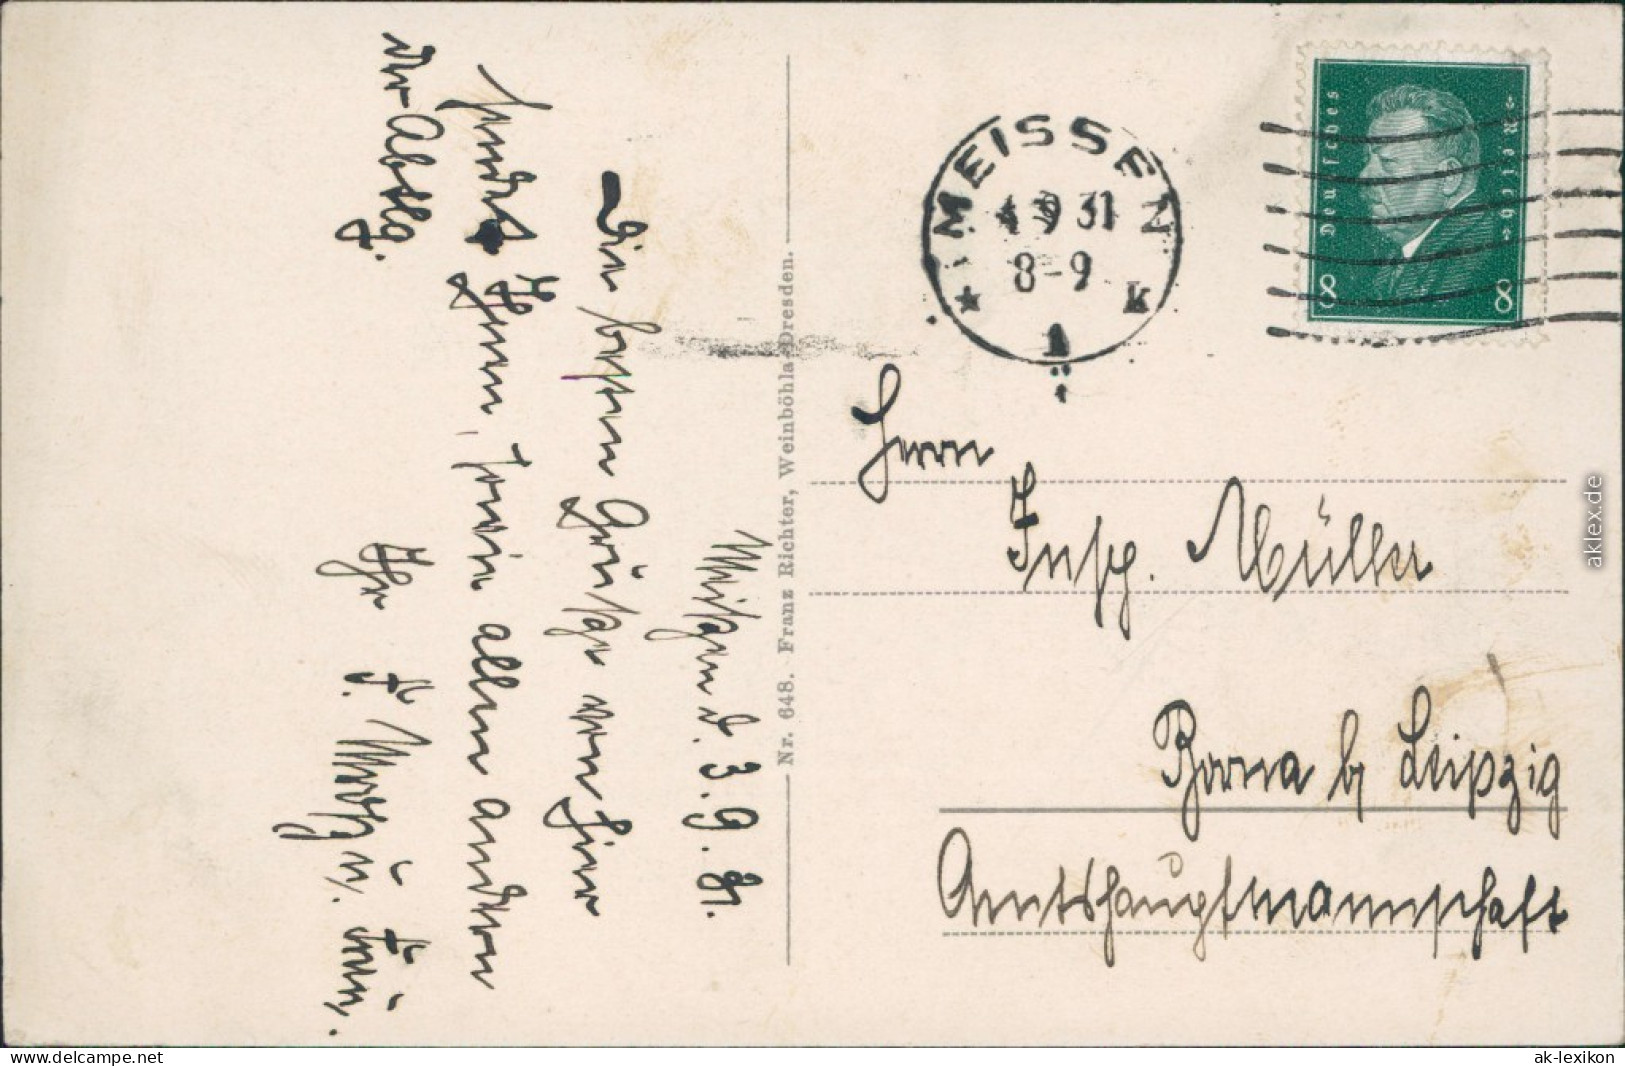 Meißen d. 3.9.31.
Die besten Grüße von hier
sendet Ihnen, sowie allen andern
der Abtlg.
Ihr F. u. Frau.
Nr. 648. Franz Richter, Weinböhla-Dresden.
MEISSEN
4 9 31
8-9
k
1
Deutsches
Reich
8 8
Herrn
Insp. Müller
Borna b/ Leipzig
Amtshauptmannschaft
aklex.de
www.delcampe.net
ak-lexikon